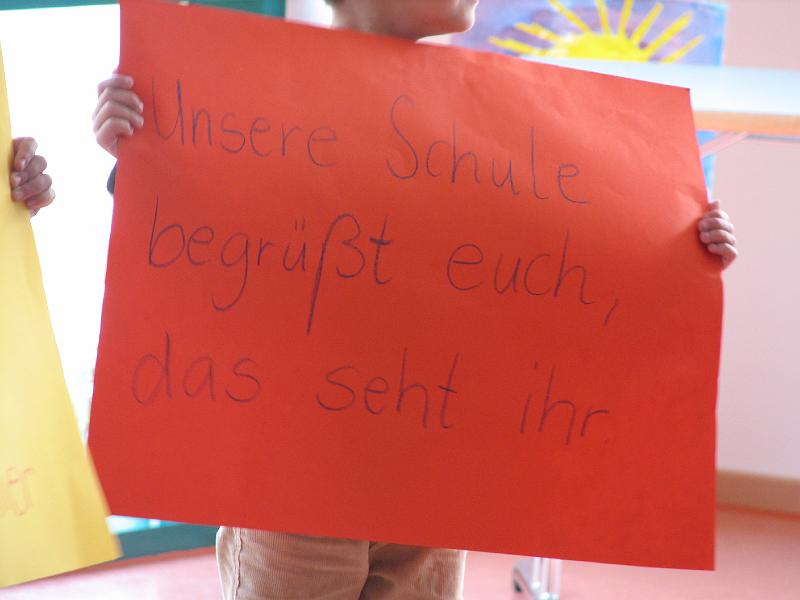 Unsere Schule
begrüßt euch,
das seht ihr.